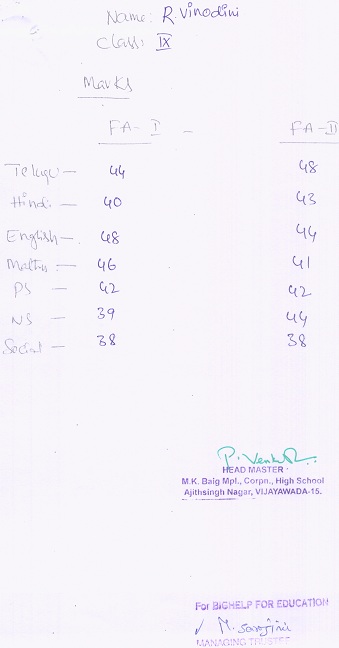 Name: R. Vinodini
Class: IX
Marks
FA - I - FA - II
Telugu - 44 48
Hindi - 40 43
English - 48 44
Maths - 46 41
PS - 42 42
NS - 39 44
Social - 38 38
HEAD MASTER
M.K. Baig Mpl., Corpn., High School
Ajithsingh Nagar, VIJAYAWADA-15.
For BIGHELP FOR EDUCATION
MANAGING TRUSTEE